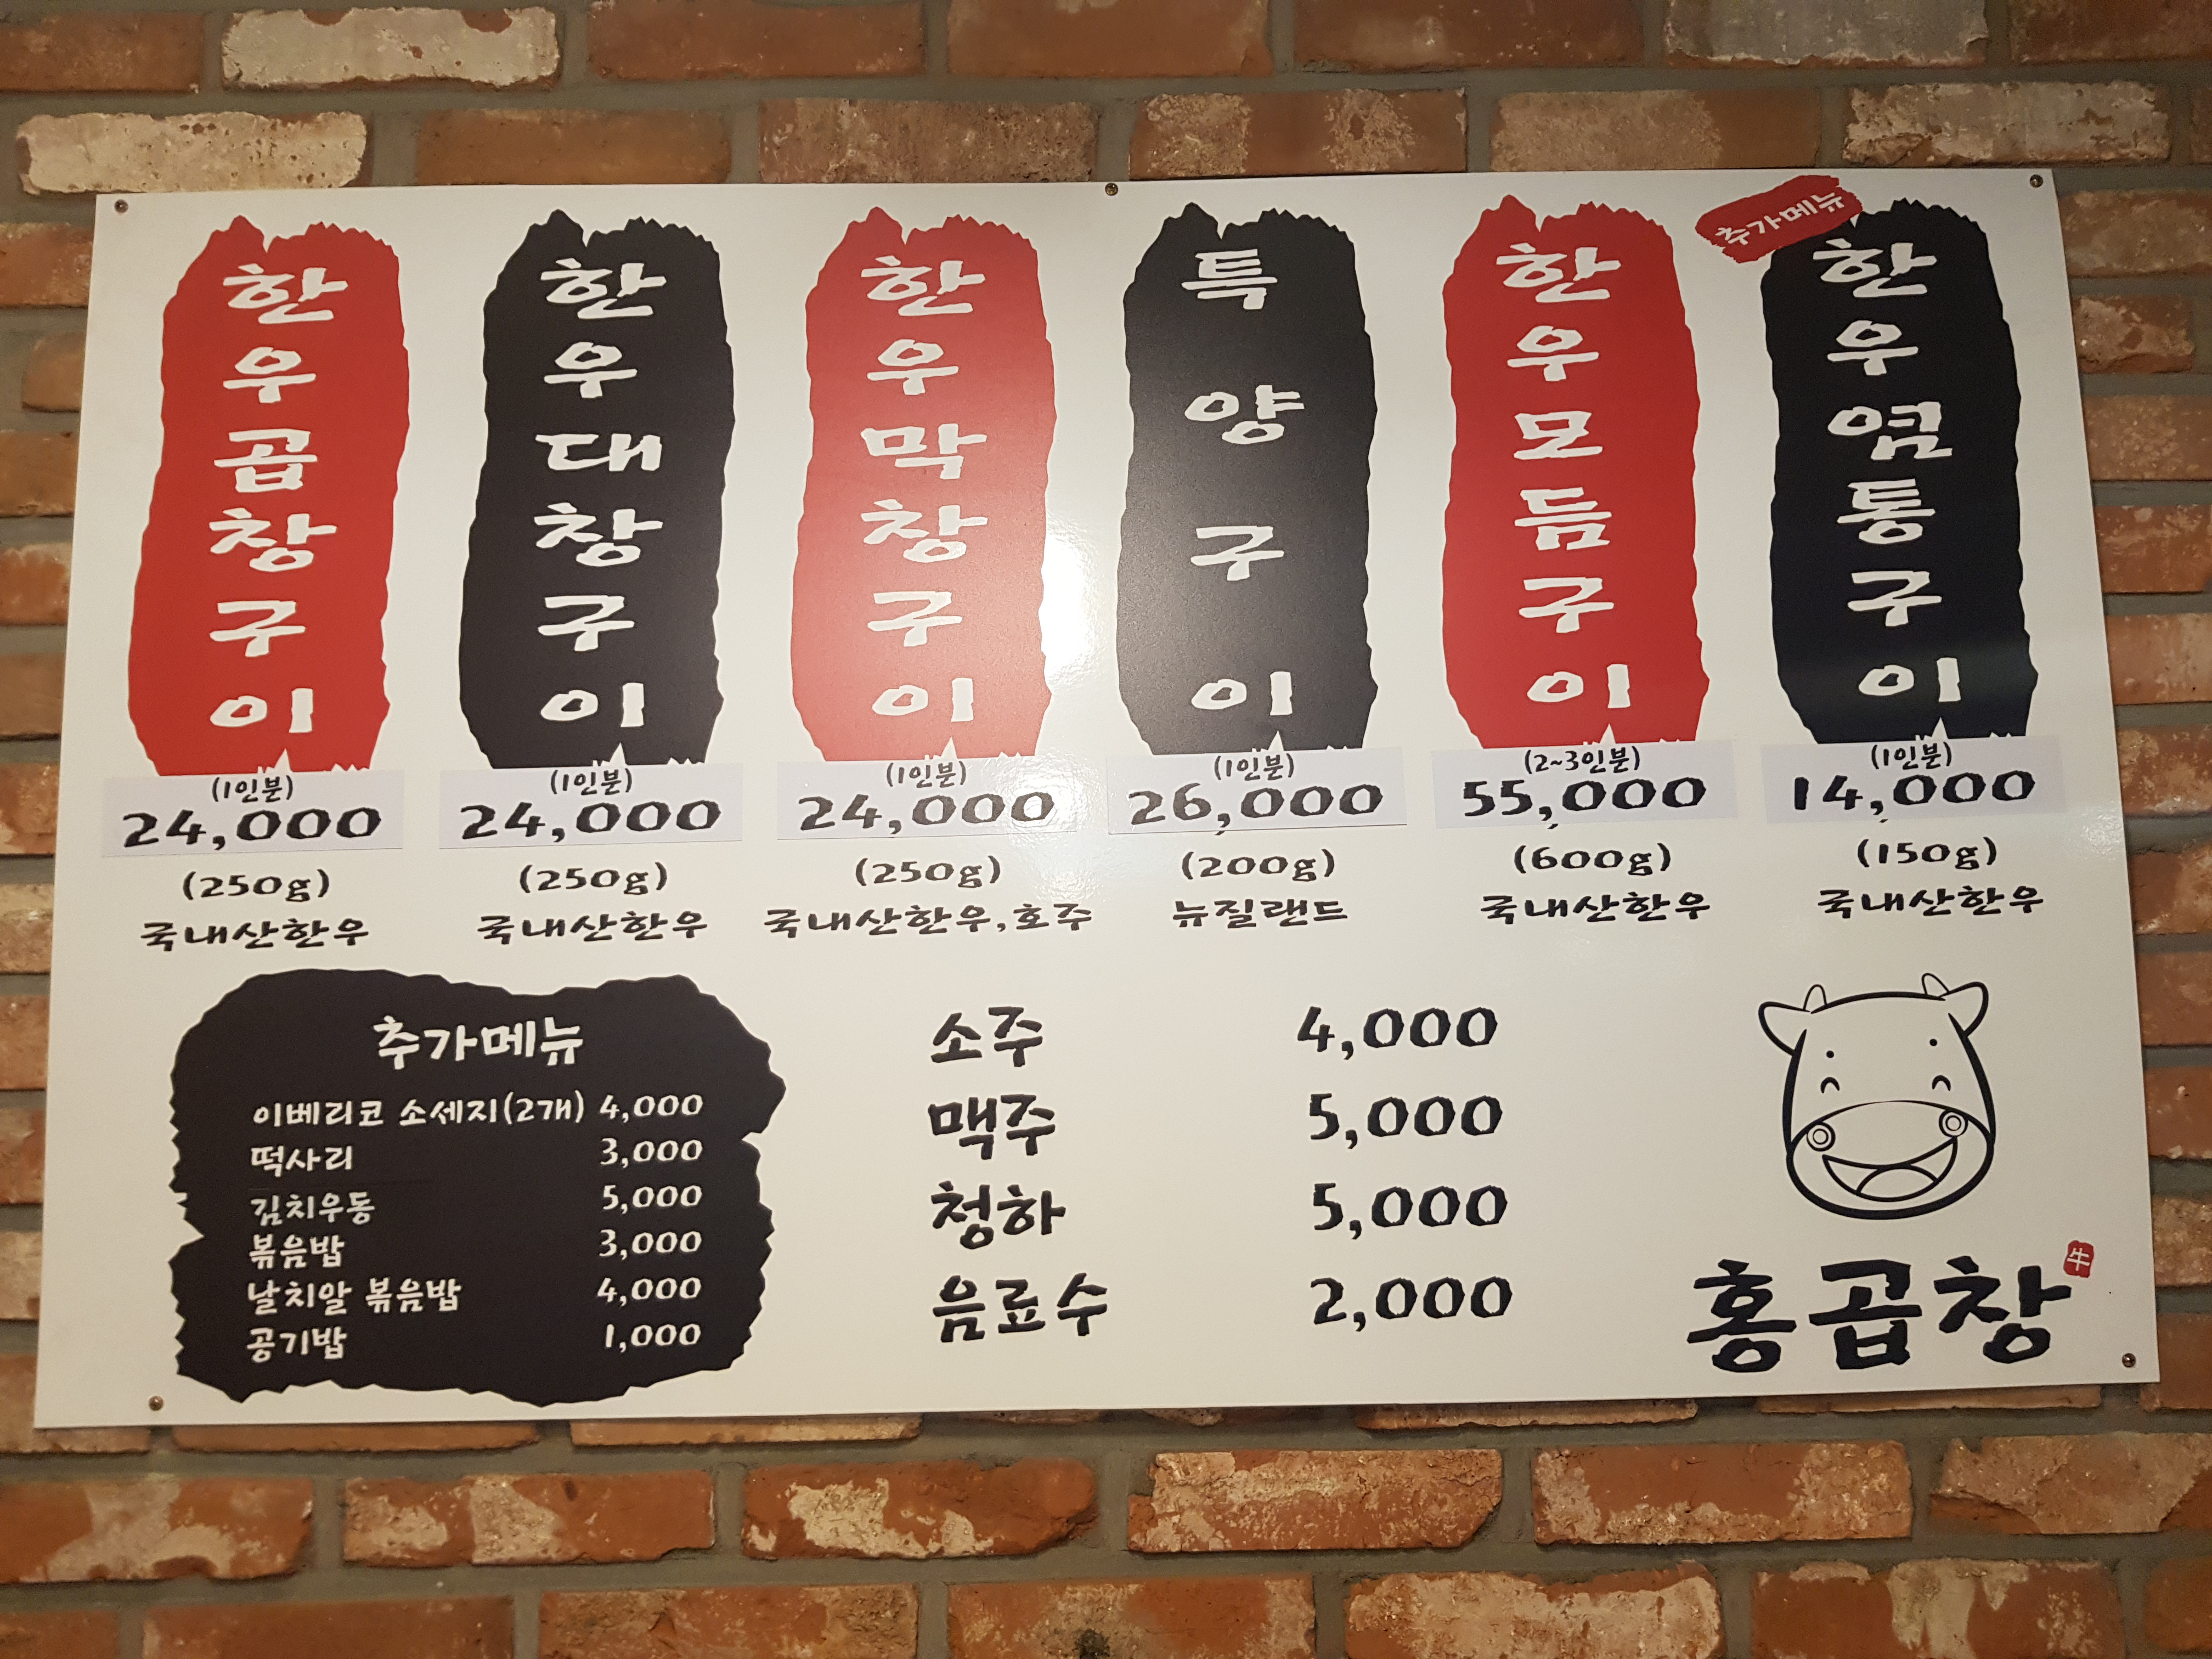 한우곱창구이
(1인분)
24,000
(250g)
국내산한우
한우대창구이
(1인분)
24,000
(250g)
국내산한우
한우막창구이
(1인분)
24,000
(250g)
국내산한우,호주
특양구이
(1인분)
26,000
(200g)
뉴질랜드
한우모듬구이
(2~3인분)
55,000
(600g)
국내산한우
추가메뉴
한우염통구이
(1인분)
14,000
(150g)
국내산한우
추가메뉴
이베리코 소세지(2개) 4,000
떡사리 3,000
김치우동 5,000
볶음밥 3,000
날치알 볶음밥 4,000
공기밥 1,000
소주 4,000
맥주 5,000
청하 5,000
음료수 2,000
홍곱창 牛